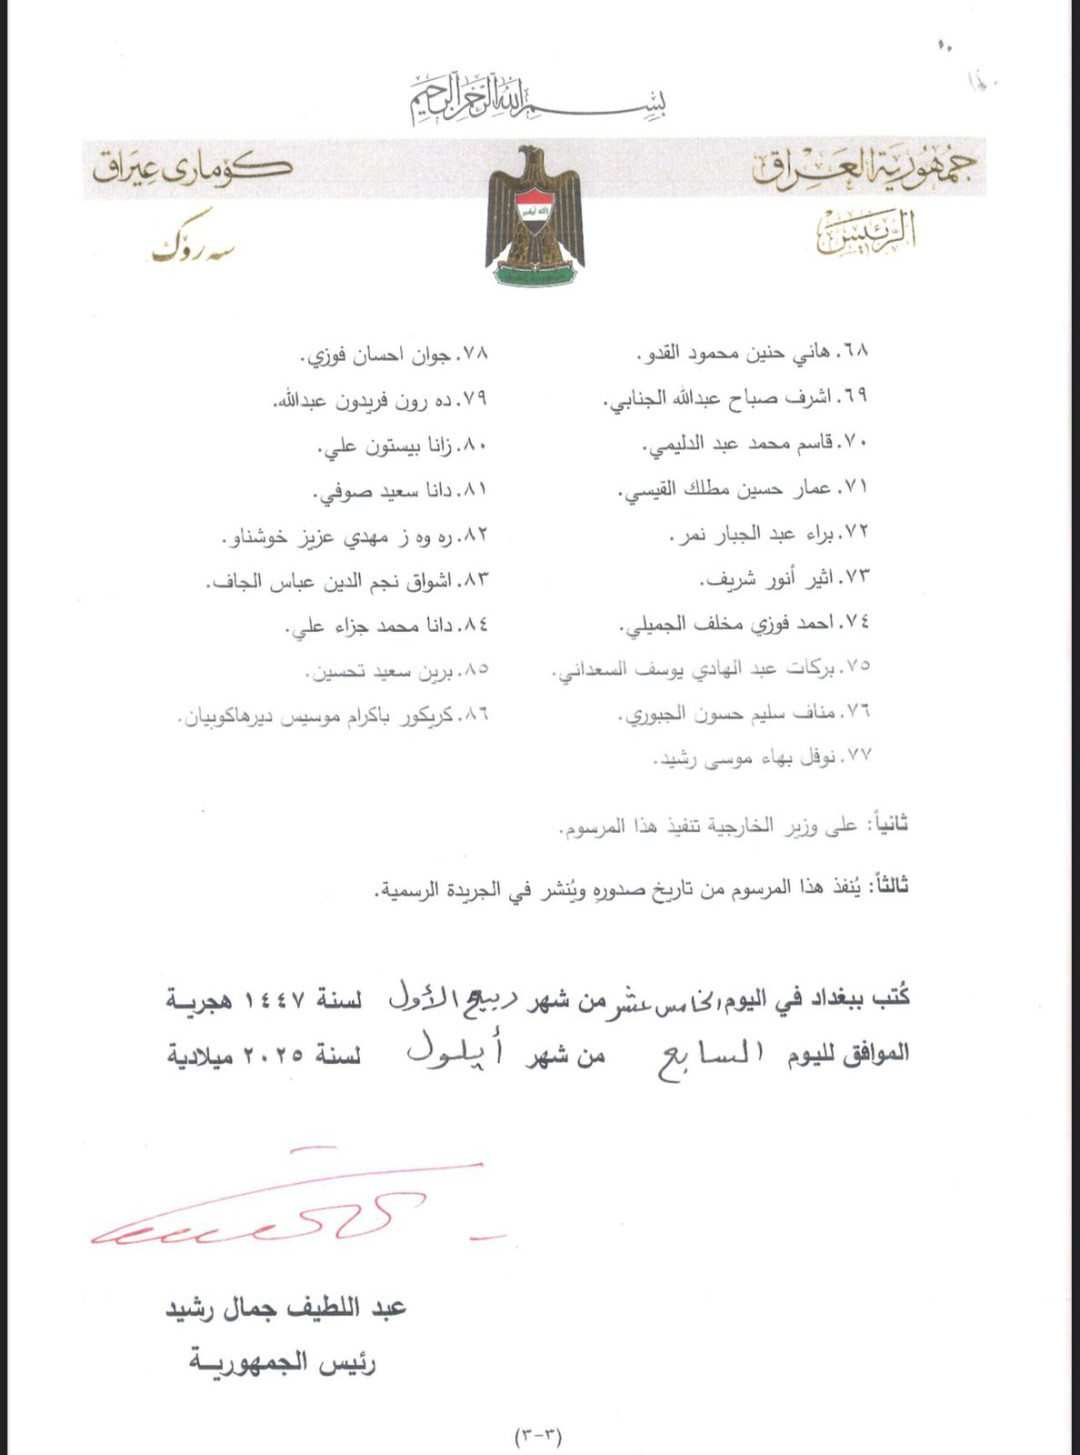 بسم الله الرحمن الرحيم
جمهورية العراق
كۆماری عیراق
الرئيس
سەرۆک
الله أكبر
٦٨. هاني حنين محمود القدو.
٦٩. اشرف صباح عبدالله الجنابي.
٧٠. قاسم محمد عبد الدليمي.
٧١. عمار حسين مطلك القيسي.
٧٢. براء عبد الجبار نمر.
٧٣. اثير أنور شريف.
٧٤. احمد فوزي مخلف الجميلي.
٧٥. بركات عبد الهادي يوسف السعداني.
٧٦. مناف سليم حسون الجبوري.
٧٧. نوفل بهاء موسى رشيد.
٧٨. جوان احسان فوزي.
٧٩. ده رون فريدون عبدالله.
٨٠. زانا بيستون علي.
٨١. دانا سعيد صوفي.
٨٢. ره وه ز مهدي عزيز خوشناو.
٨٣. اشواق نجم الدين عباس الجاف.
٨٤. دانا محمد جزاء علي.
٨٥. برين سعيد تحسين.
٨٦. كريكور باكرام موسيس ديرهاكوبيان.
ثانياً: على وزير الخارجية تنفيذ هذا المرسوم.
ثالثاً: يُنفذ هذا المرسوم من تاريخ صدوره ويُنشر في الجريدة الرسمية.
كُتب ببغداد في اليوم الخامس عشر من شهر ربيع الأول لسنة ١٤٤٧ هجرية
الموافق لليوم السابع من شهر أيلول لسنة ٢٠٢٥ ميلادية
عبد اللطيف جمال رشيد
رئيس الجمهورية
(٣-٣)